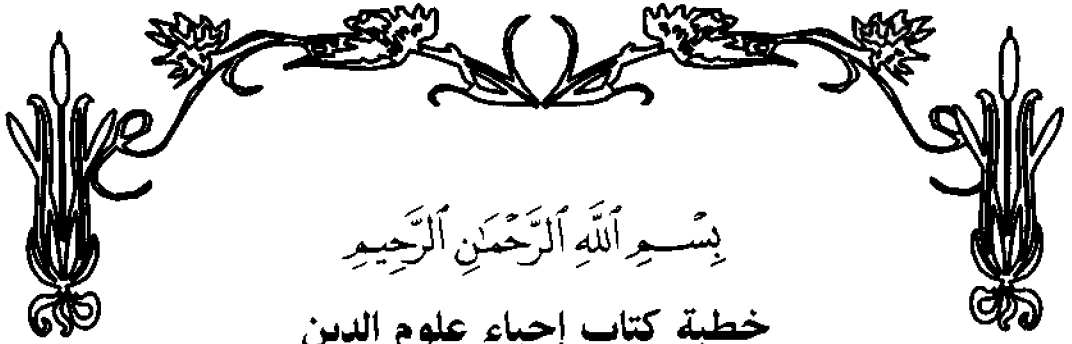 بِسْمِ ٱللَّهِ ٱلرَّحْمَٰنِ ٱلرَّحِيمِ
خطبة كتاب إحياء علوم الدين